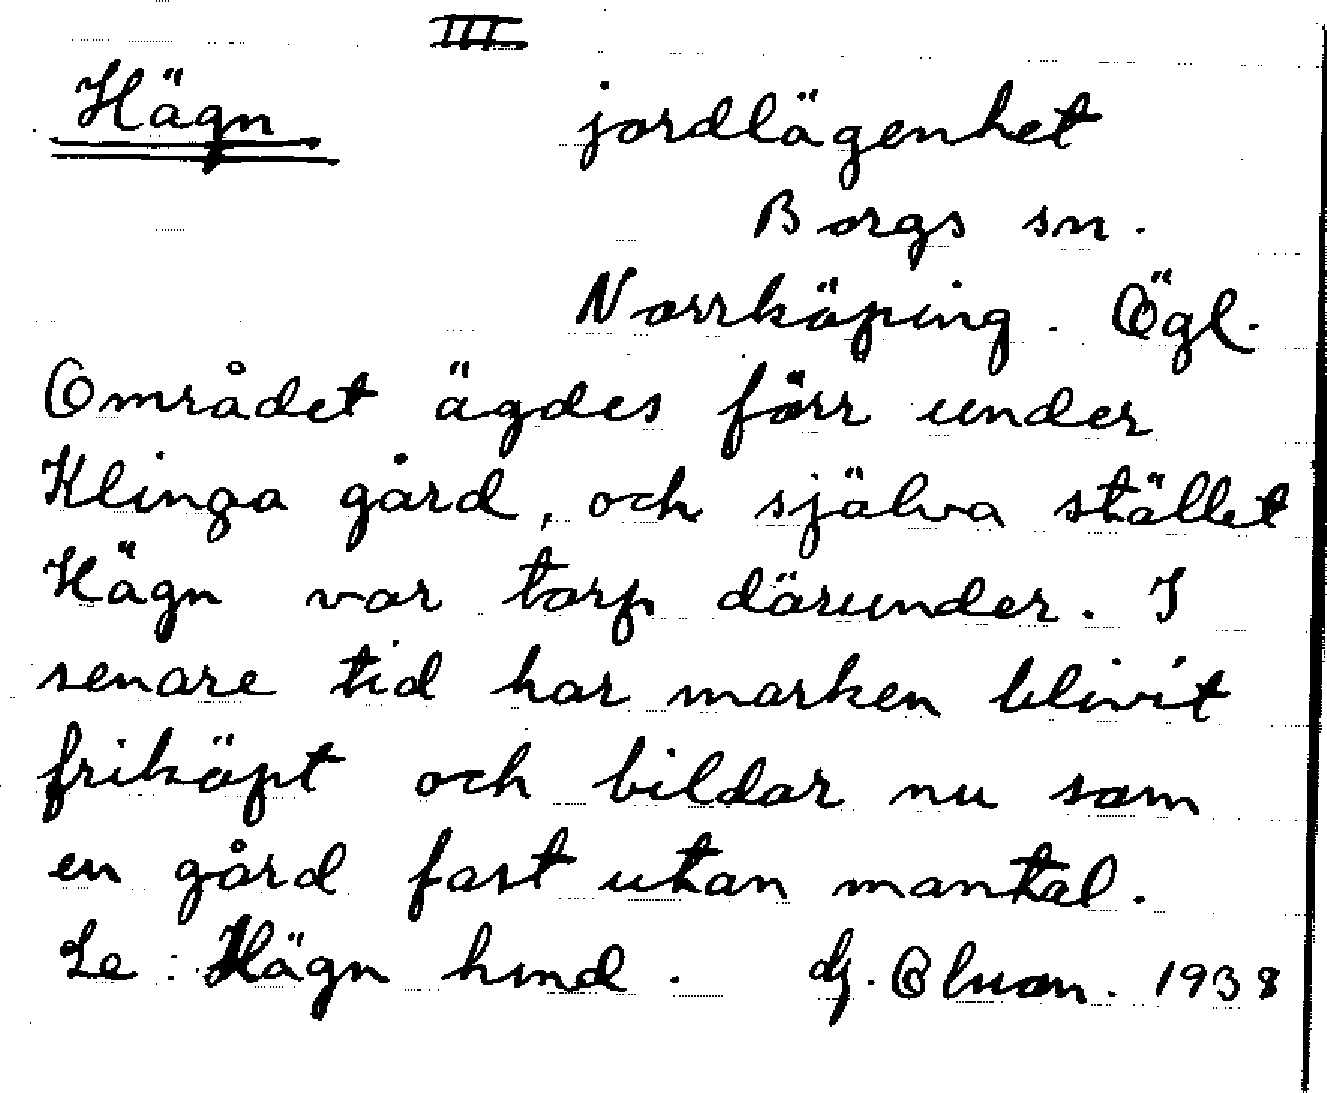 III
Hägn jordlägenhet
Borgs sn.
Norrköping. Ögl.
Området ägdes förr under
Klinga gård, och själva stället
Hägn var torp därunder. I
senare tid har marken blivit
friköpt och bildar nu som
en gård fast utan mantal.
Se: Hägn hmd. 1938